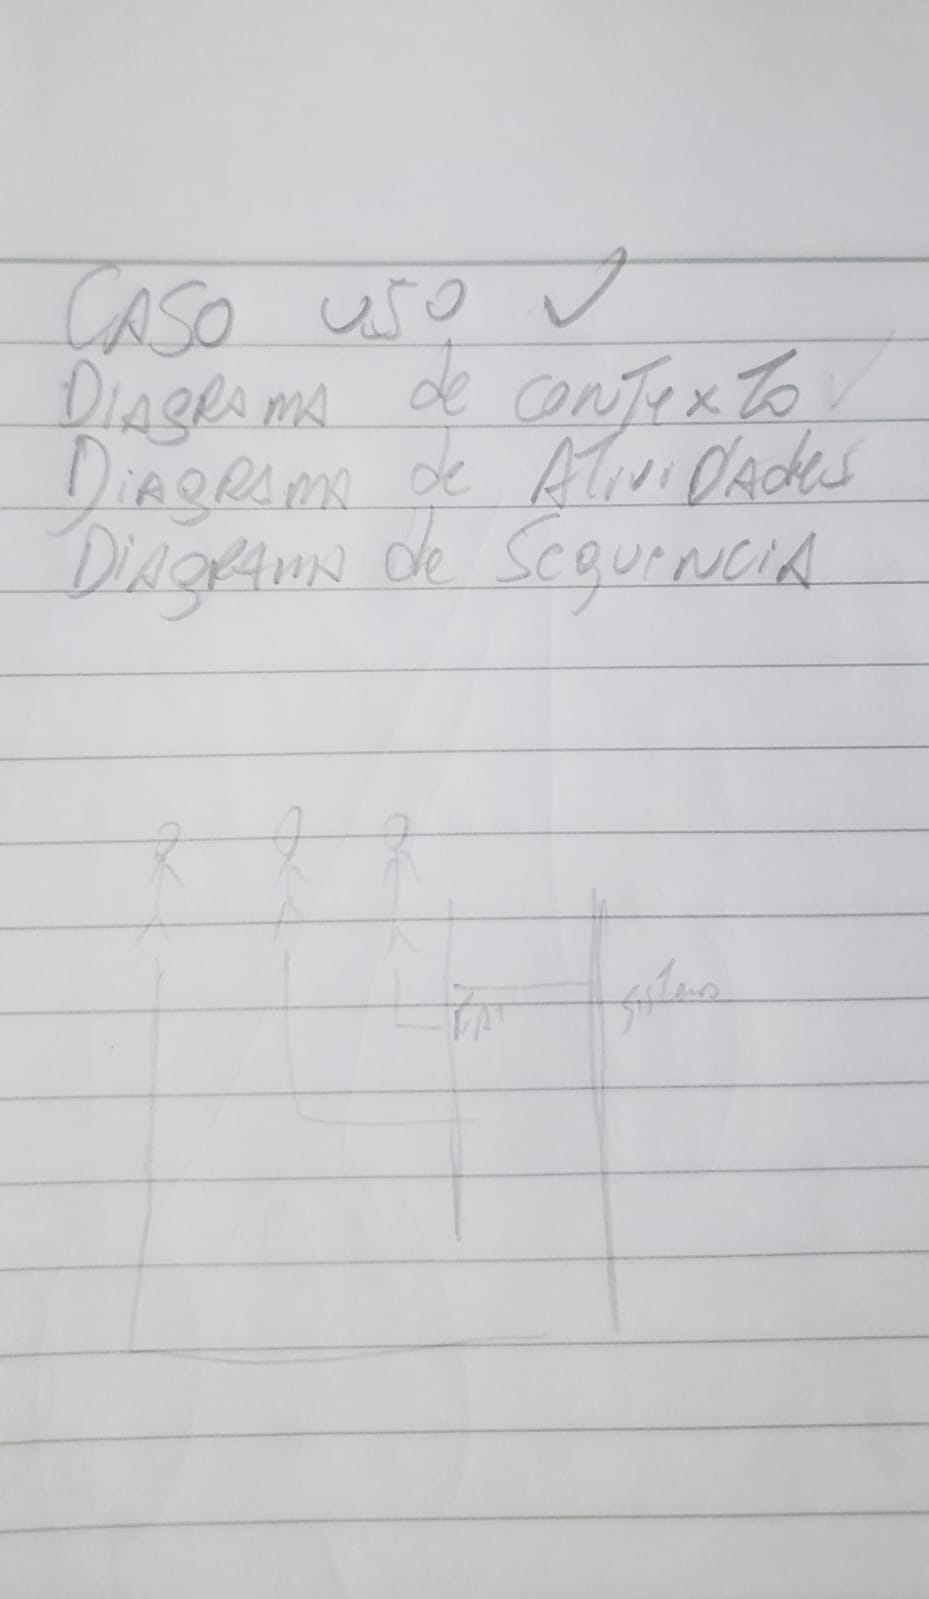 CASO USO ✓
DIAGRAMA de CONTEXTO ✓
DIAGRAMA de ATIVIDADES
DIAGRAMA de SEQUENCIA
Sistema